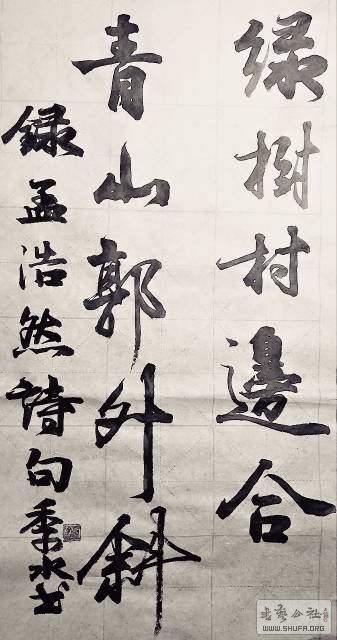 绿樹村邊合
青山郭外斜
録孟浩然詩句季水书
WWW.SHUFA.ORG